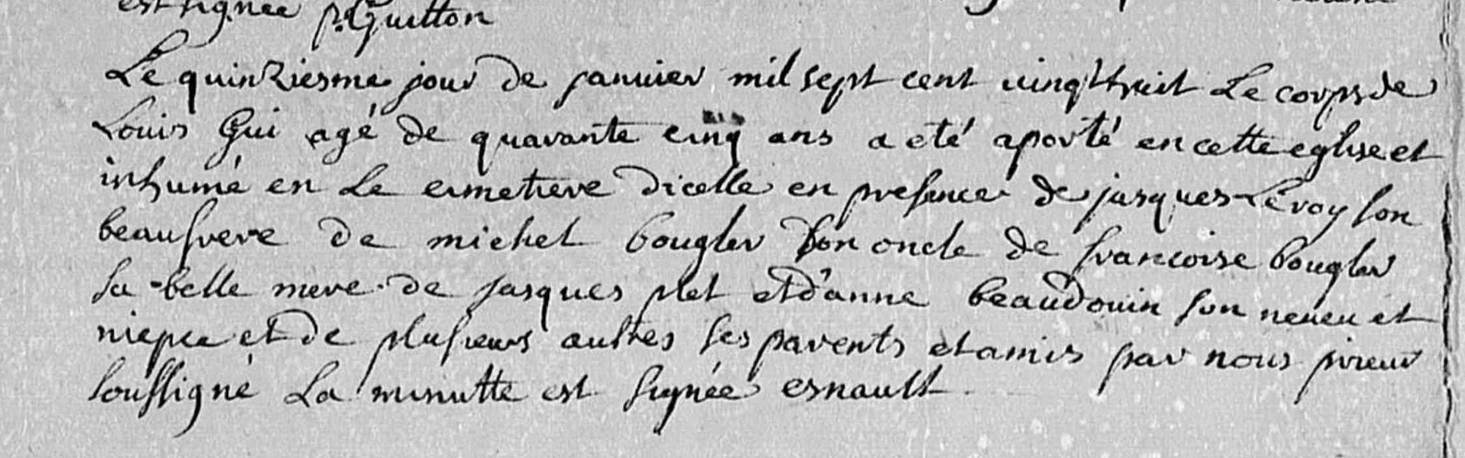 est signée p. Guitton
Le quinziesme jour de janvier mil sept cent vingthuit Le corps de
Louis Gui agé de quarante cinq ans a eté aporté en cette eglise et
inhumé en Le cimetiere dicelle en presence de jasques Leroy son
beaufrere de michel bougler son oncle de francoise bougler
sa belle mere de jasques plet et d'anne beaudouin son neveu et
niepce et de plusieurs aultres ses parents et amis par nous prieur
soussigné La minutte est signée esnault